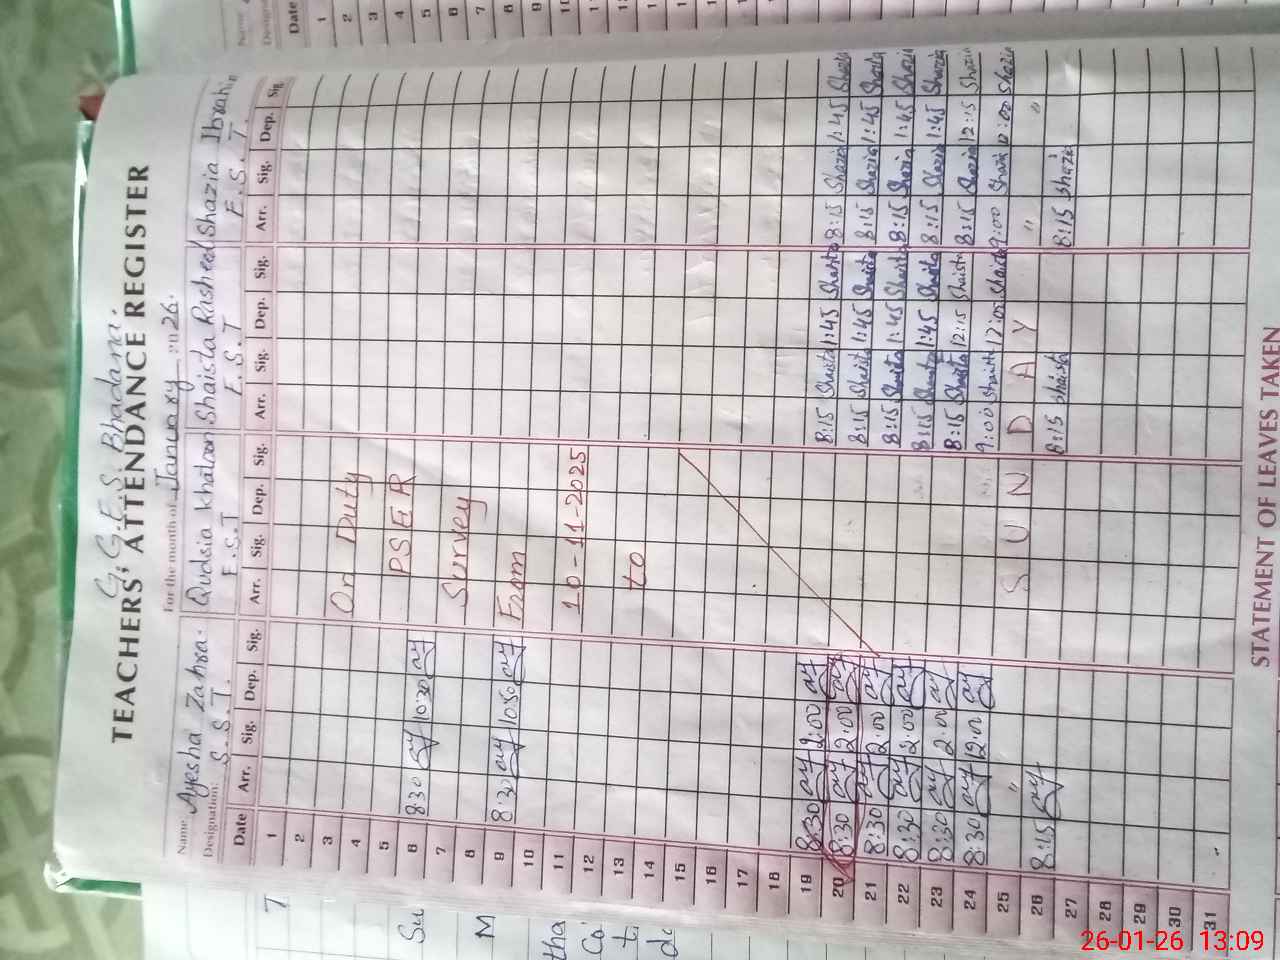 G.G.E.S. Bhadana.
TEACHERS' ATTENDANCE REGISTER
For the month of January 2026.
Name: Ayesha Zahra. Qudsia Khatoon Shaista Rasheed Shazia Ibrahim
Designation: S.S.T. E.S.T E.S.T E.S.T.
Date Arr. Sig. Dep. Sig. Arr. Sig. Dep. Sig. Arr. Sig. Dep. Sig. Arr. Sig. Dep. Sig.
1
2
3 On Duty
4
5 PSER
6 8:30 ay 10:30 ay
7 Survey
8
9 8:30 ay 10:50 ay From
10
11 10-11-2025
12
13 to
14
15
16
17
18
19 8:30 ay 2:00 ay 8:15 Shaista 1:45 Shaista 8:15 Shazia 1:45 Shazia
20 8:30 ay 2:00 ay 8:15 Shaista 1:45 Shaista 8:15 Shazia 1:45 Shazia
21 8:30 ay 2:00 ay 8:15 Shaista 1:45 Shaista 8:15 Shazia 1:45 Shazia
22 8:30 ay 2:00 ay 8:15 Shaista 1:45 Shaista 8:15 Shazia 1:45 Shazia
23 8:30 ay 2:00 ay 8:15 Shaista 12:15 Shaista 8:15 Shazia 12:15 Shazia
24 8:30 ay 12:00 ay 9:00 Shaista 12:00 Shaista 9:00 Shazia 12:00 Shazia
25 " S U N D A Y " "
26 8:15 ay 8:15 Shaista 8:15 Shazia
27
28
29
30
31
STATEMENT OF LEAVES TAKEN
26-01-26 13:09